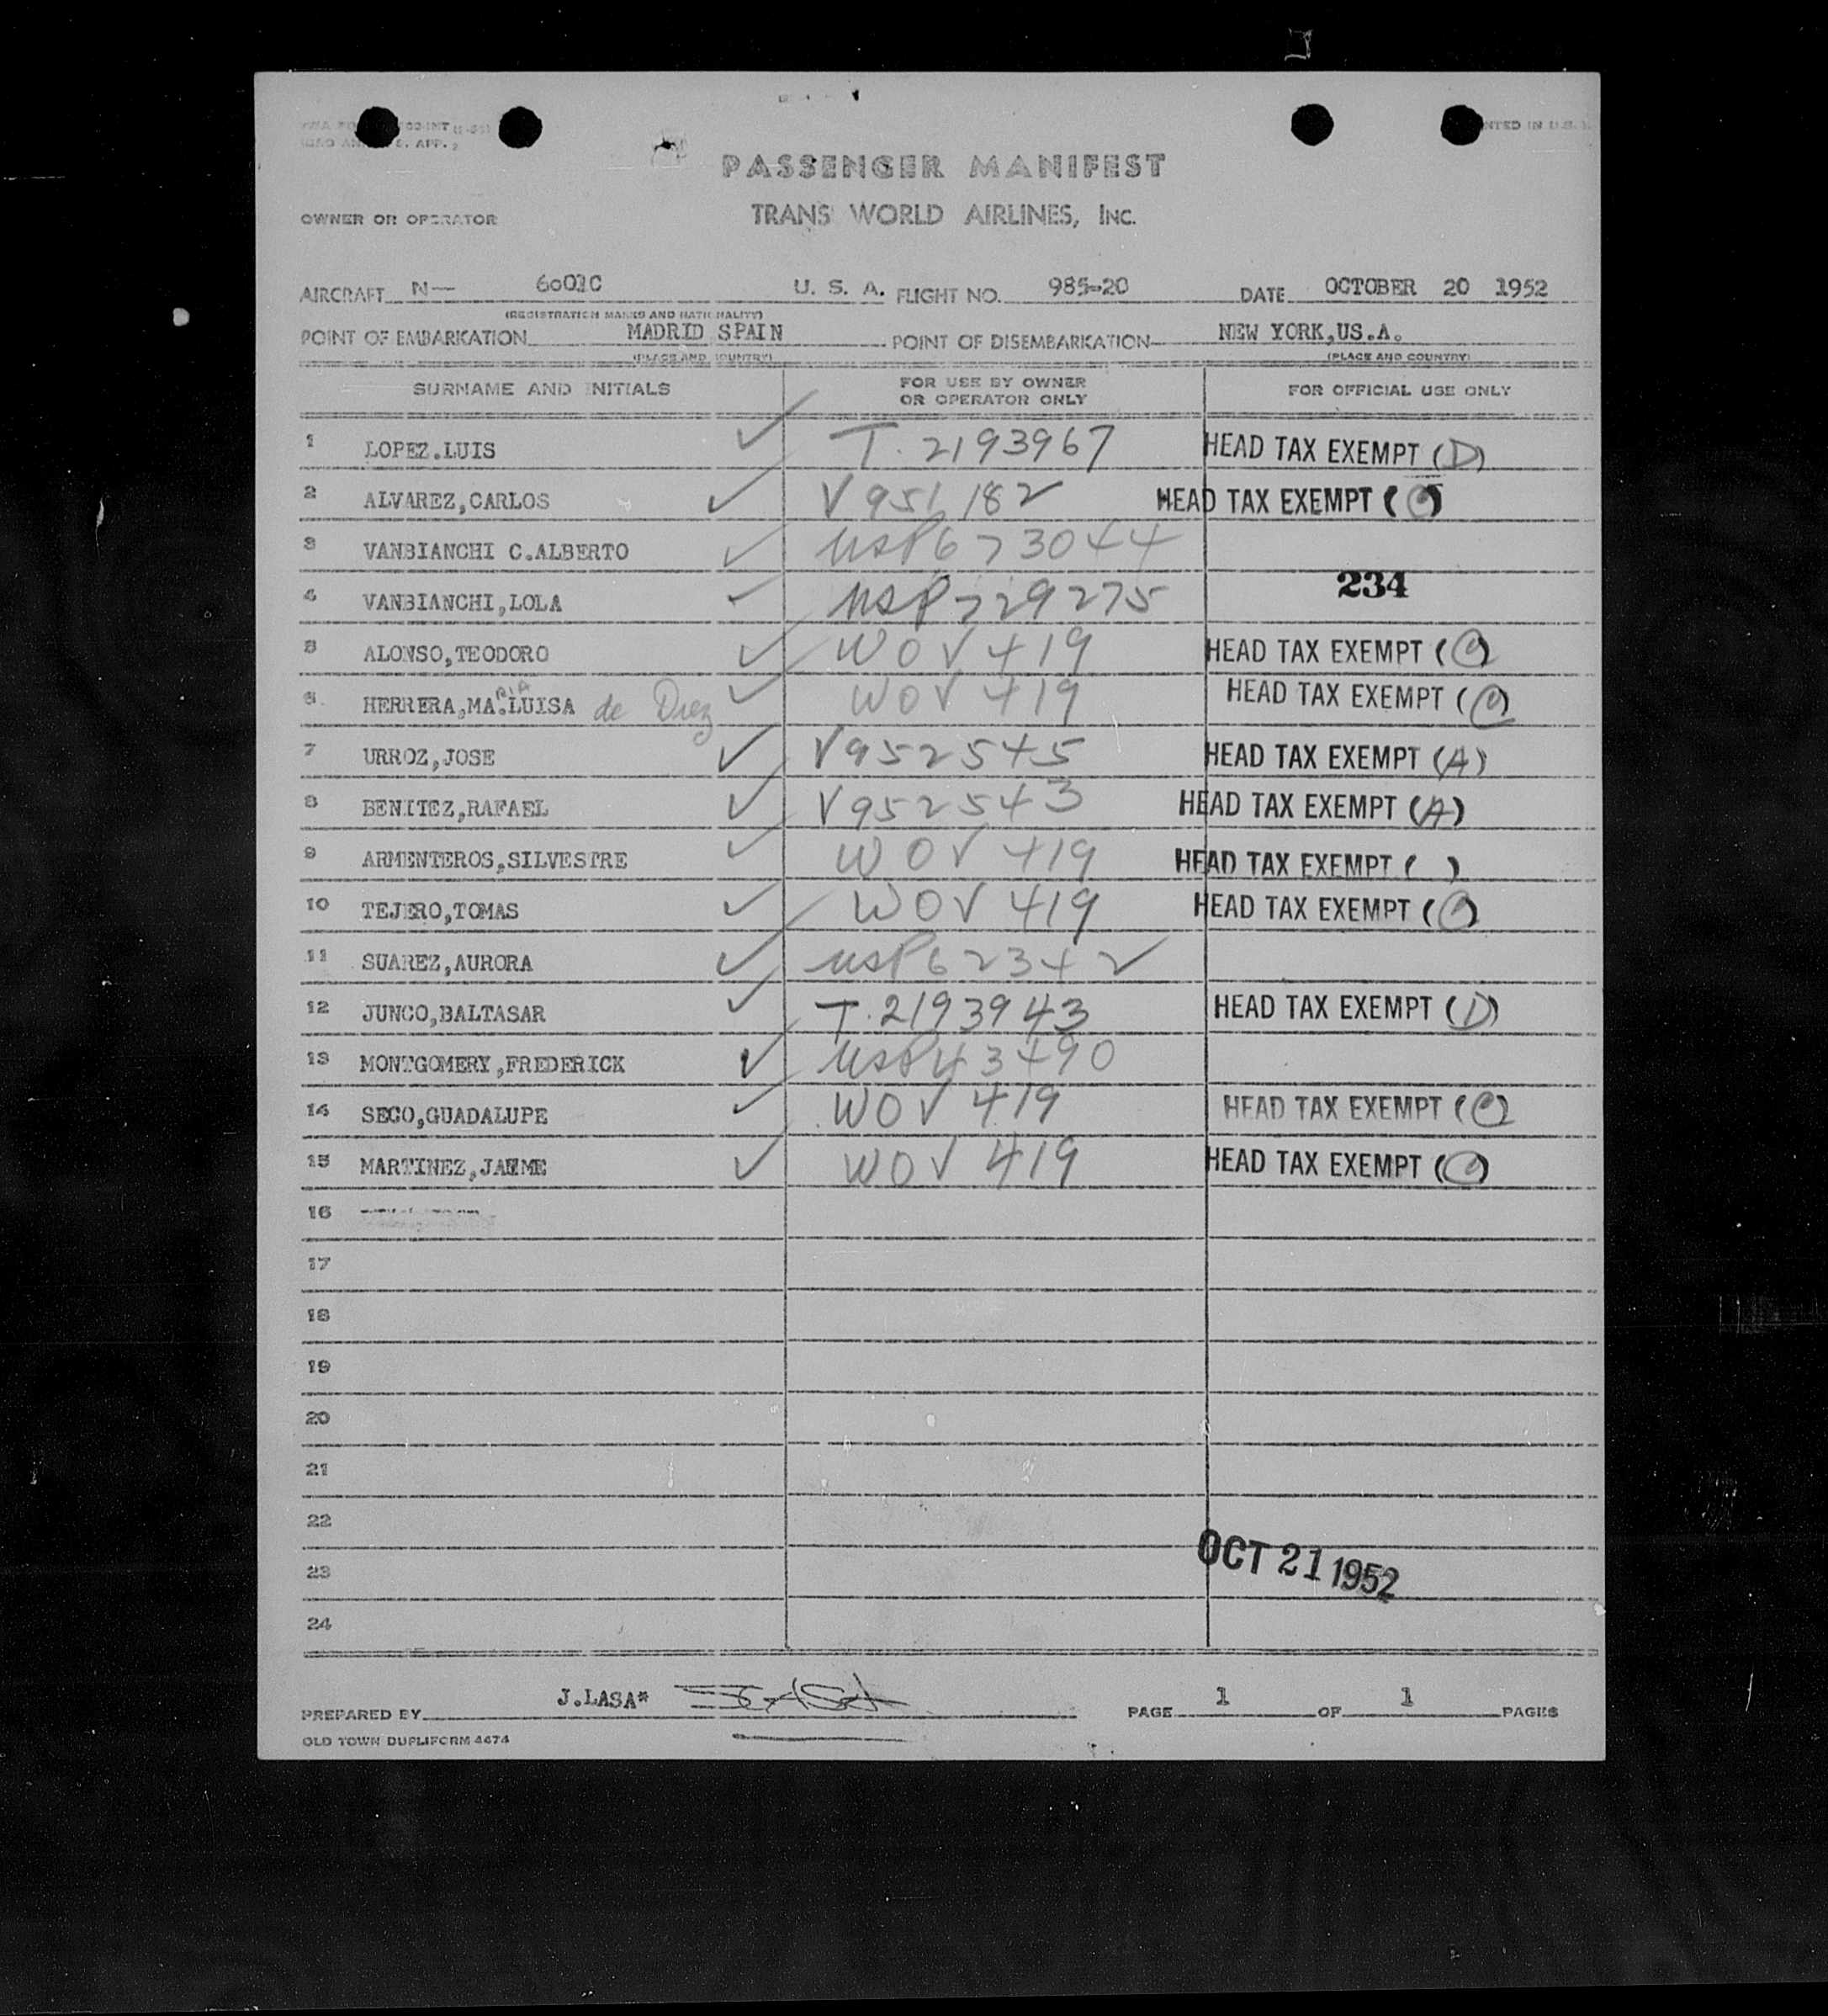 PRINTED IN U.S.
PASSENGER MANIFEST
OWNER OR OPERATOR TRANS WORLD AIRLINES, INC.
AIRCRAFT N— 6001C U. S. A. FLIGHT NO. 985-20 DATE OCTOBER 20 1952
(REGISTRATION MARKS AND NATIONALITY)
POINT OF EMBARKATION MADRID SPAIN POINT OF DISEMBARKATION NEW YORK,US.A.
(PLACE AND COUNTRY) (PLACE AND COUNTRY)
SURNAME AND INITIALS FOR USE BY OWNER OR OPERATOR ONLY FOR OFFICIAL USE ONLY
1 LOPEZ.LUIS T. 2193967 HEAD TAX EXEMPT (D)
2 ALVAREZ,CARLOS V951182 HEAD TAX EXEMPT (C)
3 VANBIANCHI C.ALBERTO USP673044
4 VANBIANCHI,LOLA USP229275 234
5 ALONSO,TEODORO WOV 419 HEAD TAX EXEMPT (C)
6 HERRERA,MA.RIA LUISA de Diez WOV 419 HEAD TAX EXEMPT (C)
7 URROZ,JOSE V952545 HEAD TAX EXEMPT (A)
8 BENITEZ,RAFAEL V952543 HEAD TAX EXEMPT (A)
9 ARMENTEROS,SILVESTRE WOV 419 HEAD TAX EXEMPT ( )
10 TEJERO,TOMAS WOV 419 HEAD TAX EXEMPT (C)
11 SUAREZ,AURORA USP62342
12 JUNCO,BALTASAR T.2193943 HEAD TAX EXEMPT (D)
13 MONTGOMERY,FREDERICK USP43490
14 SECO,GUADALUPE WOV 419 HEAD TAX EXEMPT (C)
15 MARTINEZ,JAIME WOV 419 HEAD TAX EXEMPT (C)
16
17
18
19
20
21
22
23 OCT 21 1952
24
PREPARED BY J.LASA* PAGE 1 OF 1 PAGES
OLD TOWN DUPLIFORM 4474